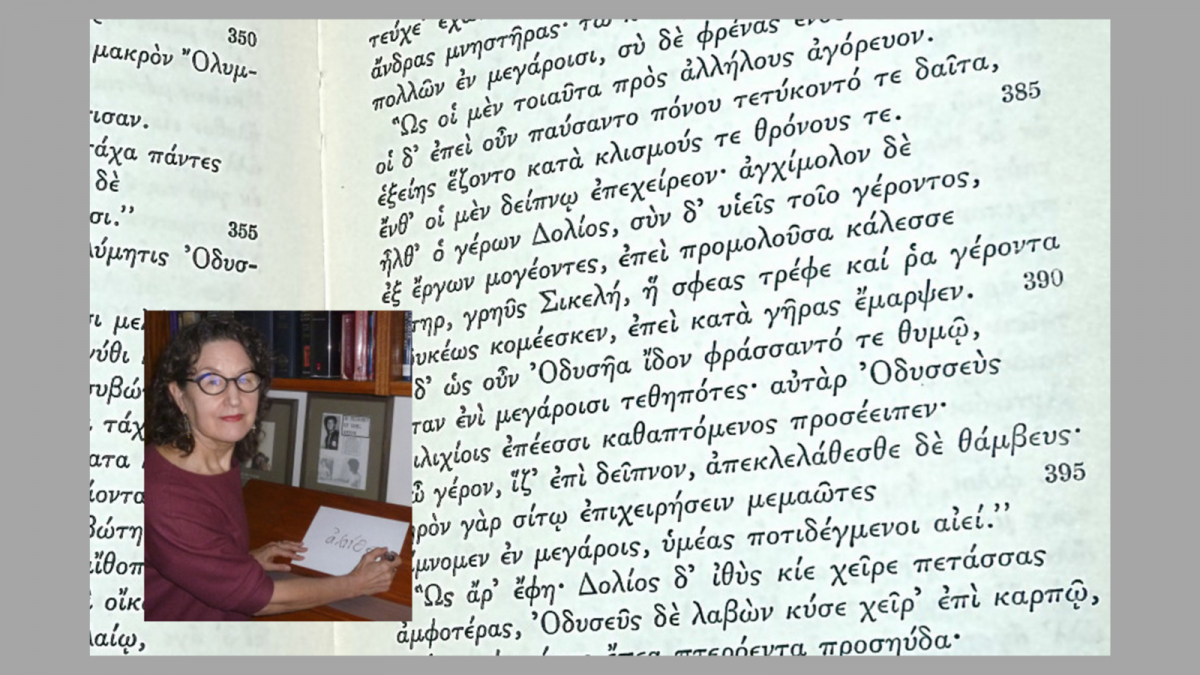 350
μακρὸν Ὄλυμ-
τάχα πάντες
δὲ
355
Ὀδυσ-
ἄνδρας μνηστῆρας·
πολλῶν ἐν μεγάροισι, σὺ δὲ φρένας
Ὣς οἱ μὲν τοιαῦτα πρὸς ἀλλήλους ἀγόρευον.
οἱ δ’ ἐπεὶ οὖν παύσαντο πόνου τετύκοντό τε δαῖτα, 385
ἑξείης ἕζοντο κατὰ κλισμούς τε θρόνους τε.
ἔνθ’ οἱ μὲν δείπνῳ ἐπεχείρεον· ἀγχίμολον δὲ
ἦλθ’ ὁ γέρων Δολίος, σὺν δ’ υἱεῖς τοῖο γέροντος,
ἐξ ἔργων μογέοντες, ἐπεὶ προμολοῦσα κάλεσσε
τηρ, γρηῦς Σικελή, ἥ σφεας τρέφε καί ῥα γέροντα
υκέως κομέεσκεν, ἐπεὶ κατὰ γῆρας ἔμαρψεν. 390
δ’ ὡς οὖν Ὀδυσῆα ἴδον φράσσαντό τε θυμῷ,
ταν ἐνὶ μεγάροισι τεθηπότες· αὐτὰρ Ὀδυσσεὺς
ιλιχίοις ἐπέεσσι καθαπτόμενος προσέειπεν·
γέρον, ἵζ’ ἐπὶ δεῖπνον, ἀπεκλελάθεσθε δὲ θάμβευς·
ρὸν γὰρ σίτῳ ἐπιχειρήσειν μεμαῶτες 395
μνομεν ἐν μεγάροις, ὑμέας ποτιδέγμενοι αἰεί.’’
Ὣς ἄρ’ ἔφη· Δολίος δ’ ἰθὺς κίε χεῖρε πετάσσας
ἀμφοτέρας, Ὀδυσεῦς δὲ λαβὼν κύσε χεῖρ’ ἐπὶ καρπῷ,
πτερόεντα προσηύδα·